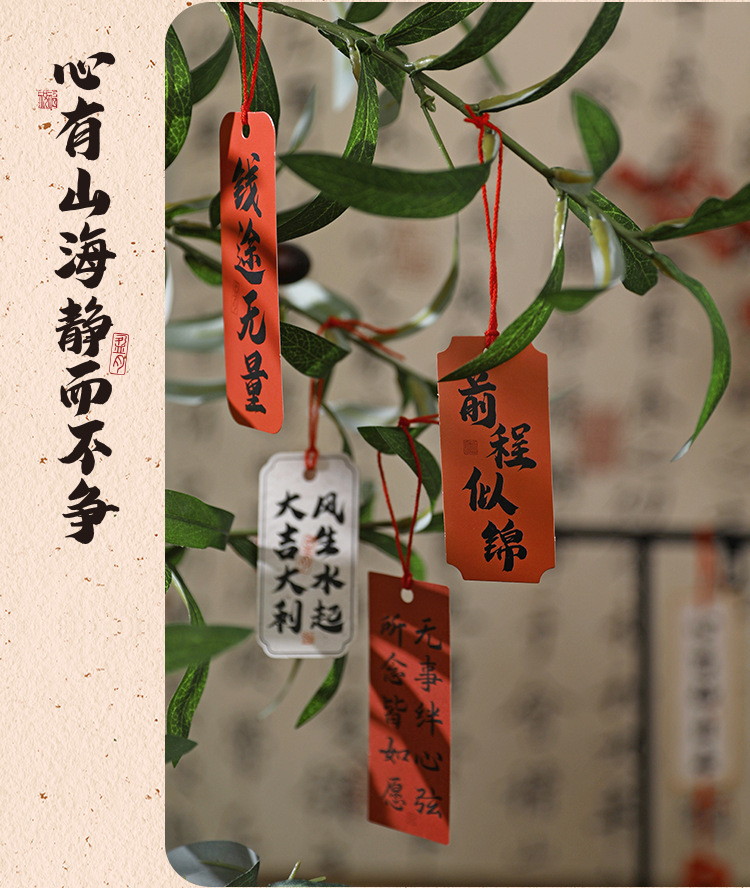 心有山海静而不争
钱途无量
前程似锦
风生水起
大吉大利
无事绊心弦
所念皆如愿